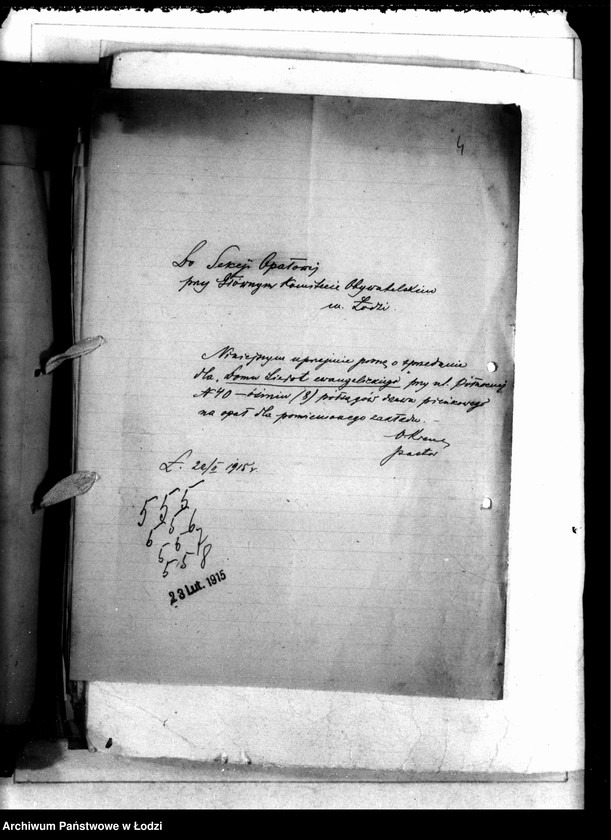 4
Do Sekcji Opałowej
przy Głównym Komitecie Obywatelskim
m. Łodzi.
Niniejszym uprzejmie proszę o sprzedanie
dla "Domu Sierot ewangelickiego przy ul. Północnej
N 40 – ośmiu (8) półsągów drzewa pieńkowego
na opał dla pomienionego zakładu. –
pastor
Ł. 22/II 1915 r.
5 5 5
6 5 6
6 6 7
5 5 8
23 Lut. 1915
Archiwum Państwowe w Łodzi